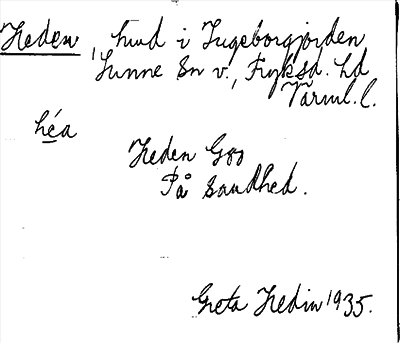 Heden, hmd i Ingeborgfjorden
Sunne Sn v., Fryksd. hd
Värml. l.
héa
Heden Goo
På Sandhed.
Greta Hedin 1935.